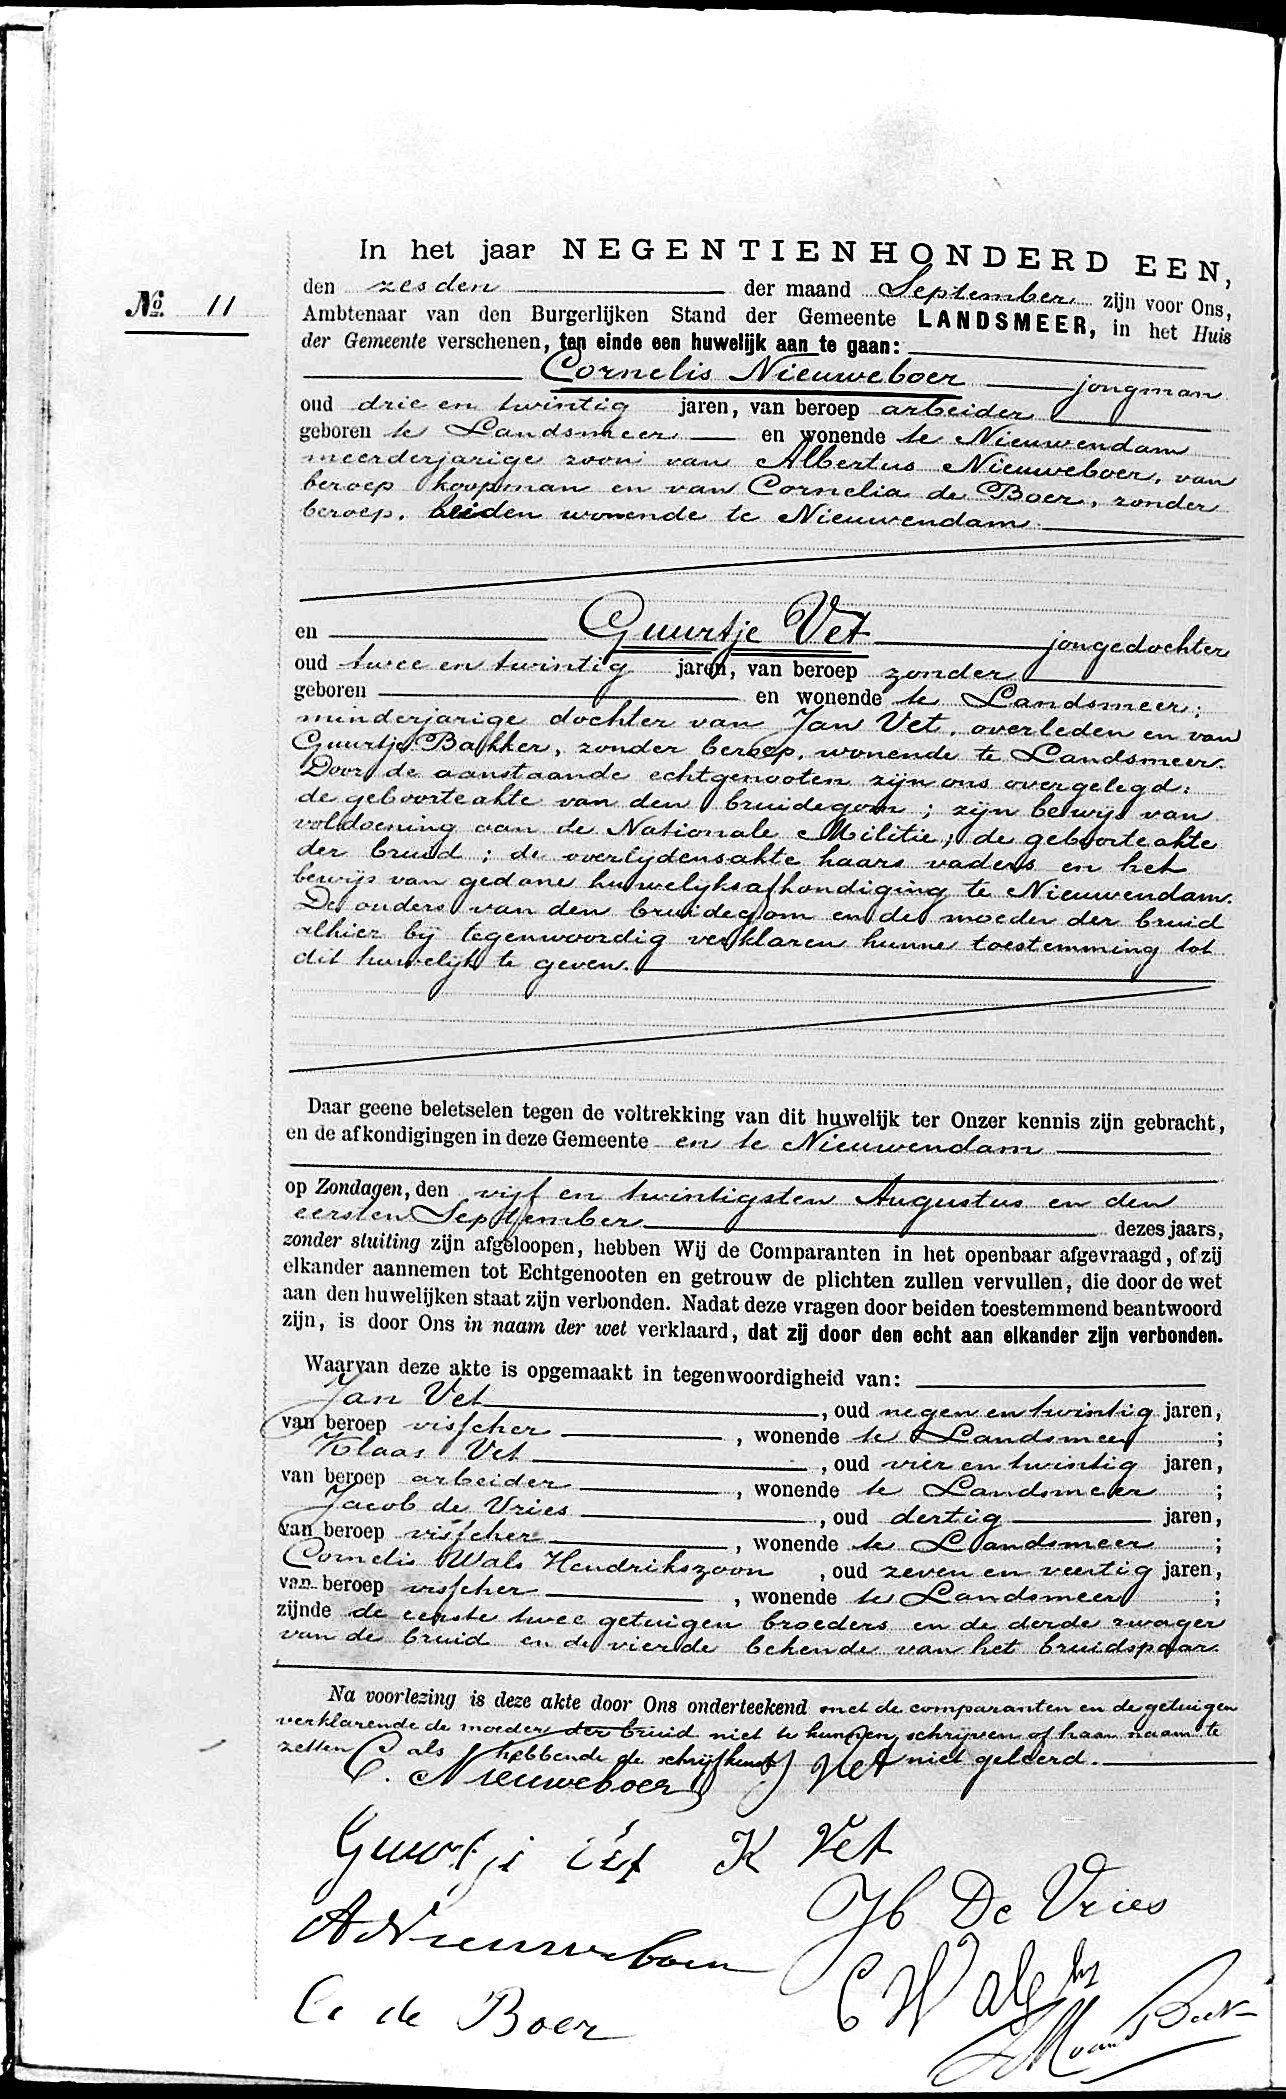 In het jaar NEGENTIENHONDERD EEN,
den zesden der maand September zijn voor Ons,
No. 11
Ambtenaar van den Burgerlijken Stand der Gemeente LANDSMEER, in het Huis
der Gemeente verschenen, ten einde een huwelijk aan te gaan:
Cornelis Nieuweboer jongman
oud drie en twintig jaren, van beroep arbeider
geboren te Landsmeer en wonende te Nieuwendam
meerderjarige zoon van Albertus Nieuweboer, van
beroep koopman en van Cornelia de Boer, zonder
beroep, beiden wonende te Nieuwendam
en Guurtje Vet jongedochter
oud twee en twintig jaren, van beroep zonder
geboren en wonende te Landsmeer;
minderjarige dochter van Jan Vet, overleden en van
Guurtje Bakker, zonder beroep, wonende te Landsmeer.
Door de aanstaande echtgenooten zijn ons overgelegd:
de geboorteakte van den bruidegom; zijn bewijs van
voldoening aan de Nationale Militie; de geboorteakte
der bruid; de overlijdensakte haars vaders en het
bewijs van gedane huwelijksafkondiging te Nieuwendam.
De ouders van den bruidegom en de moeder der bruid
alhier bij tegenwoordig verklaren hunne toestemming tot
dit huwelijk te geven.
Daar geene beletselen tegen de voltrekking van dit huwelijk ter Onzer kennis zijn gebracht,
en de afkondigingen in deze Gemeente en te Nieuwendam
op Zondagen, den vijf en twintigsten Augustus en den
eersten September dezes jaars,
zonder sluiting zijn afgeloopen, hebben Wij de Comparanten in het openbaar afgevraagd, of zij
elkander aannemen tot Echtgenooten en getrouw de plichten zullen vervullen, die door de wet
aan den huwelijken staat zijn verbonden. Nadat deze vragen door beiden toestemmend beantwoord
zijn, is door Ons in naam der wet verklaard, dat zij door den echt aan elkander zijn verbonden.
Waarvan deze akte is opgemaakt in tegenwoordigheid van:
Jan Vet, oud negen en twintig jaren,
van beroep visscher, wonende te Landsmeer;
Klaas Vet, oud vier en twintig jaren,
van beroep arbeider, wonende te Landsmeer;
Jacob de Vries, oud dertig jaren,
van beroep visscher, wonende te Landsmeer;
Cornelis Wals Hendrikszoon, oud zeven en veertig jaren,
van beroep visscher, wonende te Landsmeer;
zijnde de eerste twee getuigen broeders en de derde zwager
van de bruid en de vierde bekende van het bruidspaar.
Na voorlezing is deze akte door Ons onderteekend met de comparanten en de getuigen
verklarende de moeder der bruid niet te kunnen schrijven of haar naam te
zetten als hebbende de schrijfkunst niet geleerd.
C. Nieuweboer J Vet
Guurtje Vet K Vet
A Nieuweboer Jb De Vries
C de Boer C Wals Hz